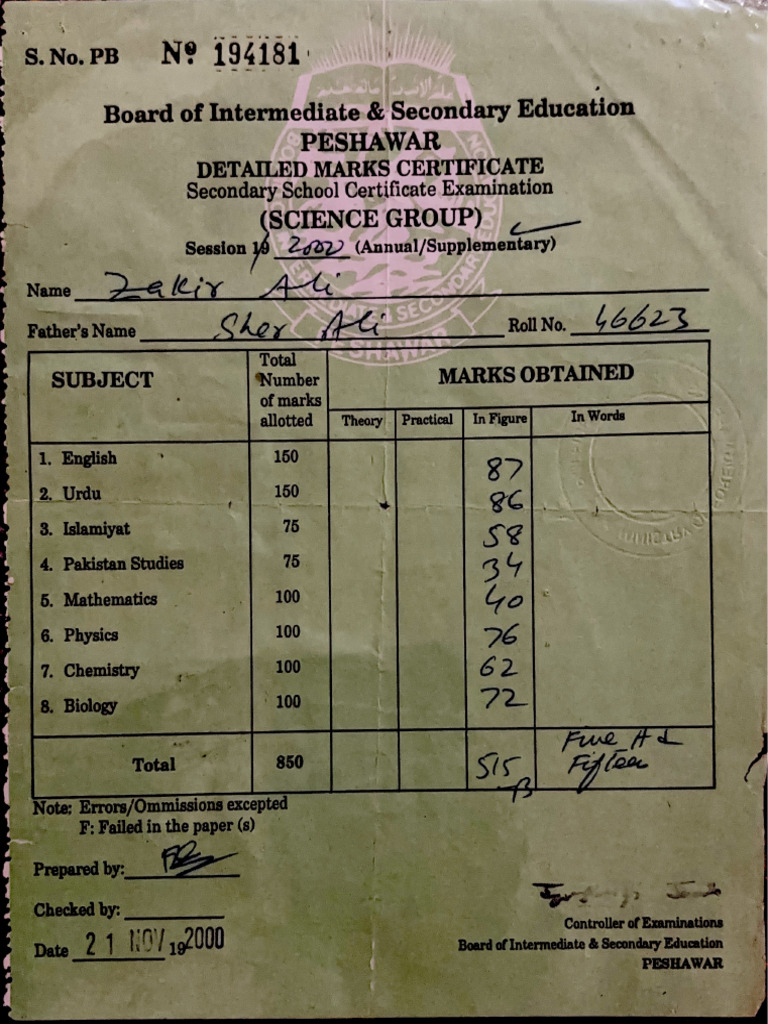 S. No. PB Nº 194181
Board of Intermediate & Secondary Education
PESHAWAR
DETAILED MARKS CERTIFICATE
Secondary School Certificate Examination
(SCIENCE GROUP)
Session 19 2000 (Annual/Supplementary)
Name Zakir Ali
Father's Name Sher Ali Roll No. 46623
SUBJECT Total Number of marks allotted MARKS OBTAINED
Theory Practical In Figure In Words
1. English 150 87
2. Urdu 150 86
3. Islamiyat 75 58
4. Pakistan Studies 75 34
5. Mathematics 100 40
6. Physics 100 76
7. Chemistry 100 62
8. Biology 100 72
Total 850 515 Five Hd Fifteen
Note: Errors/Ommissions excepted
F: Failed in the paper (s)
Prepared by:
Checked by:
Date 21 NOV 192000
Controller of Examinations
Board of Intermediate & Secondary Education
PESHAWAR